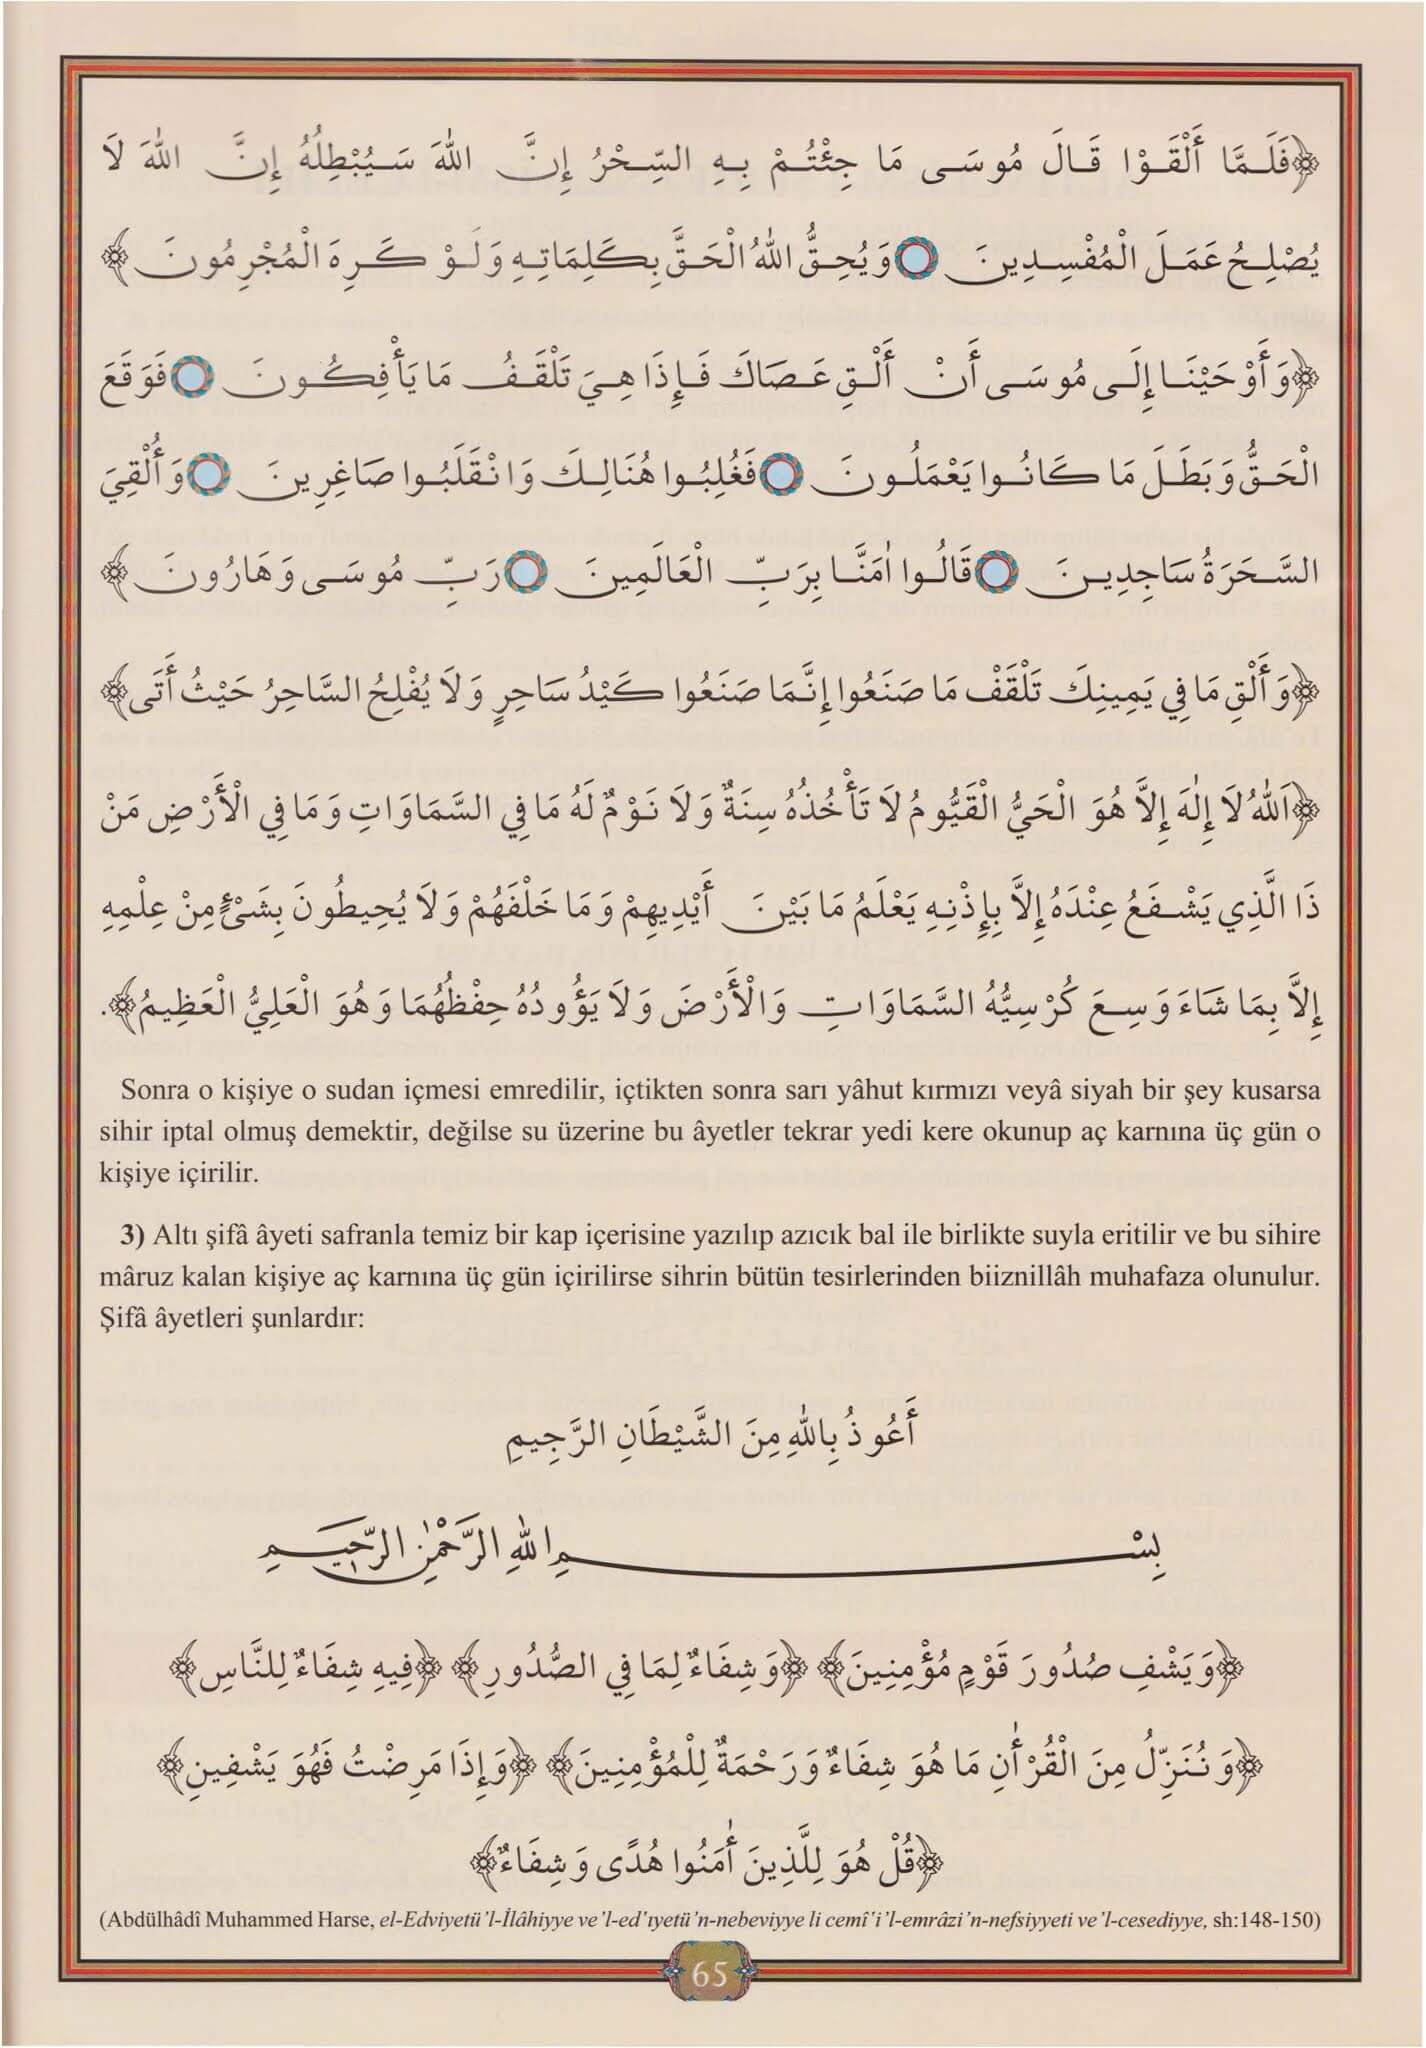 ﴿فَلَمَّا أَلْقَوْا قَالَ مُوسَى مَا جِئْتُمْ بِهِ السِّحْرُ إِنَّ اللّٰهَ سَيُبْطِلُهُ إِنَّ اللّٰهَ لَا
يُصْلِحُ عَمَلَ الْمُفْسِدِينَ ۝ وَيُحِقُّ اللّٰهُ الْحَقَّ بِكَلِمَاتِهِ وَلَوْ كَرِهَ الْمُجْرِمُونَ﴾
﴿وَأَوْحَيْنَا إِلَى مُوسَى أَنْ أَلْقِ عَصَاكَ فَإِذَا هِيَ تَلْقَفُ مَا يَأْفِكُونَ ۝ فَوَقَعَ
الْحَقُّ وَبَطَلَ مَا كَانُوا يَعْمَلُونَ ۝ فَغُلِبُوا هُنَالِكَ وَانْقَلَبُوا صَاغِرِينَ ۝ وَأُلْقِيَ
السَّحَرَةُ سَاجِدِينَ ۝ قَالُوا اٰمَنَّا بِرَبِّ الْعَالَمِينَ ۝ رَبِّ مُوسَى وَهَارُونَ﴾
﴿وَأَلْقِ مَا فِي يَمِينِكَ تَلْقَفْ مَا صَنَعُوا إِنَّمَا صَنَعُوا كَيْدُ سَاحِرٍ وَلَا يُفْلِحُ السَّاحِرُ حَيْثُ أَتَى﴾
﴿اَللّٰهُ لَا إِلٰهَ إِلَّا هُوَ الْحَيُّ الْقَيُّومُ لَا تَأْخُذُهُ سِنَةٌ وَلَا نَوْمٌ لَهُ مَا فِي السَّمَاوَاتِ وَمَا فِي الْأَرْضِ مَنْ
ذَا الَّذِي يَشْفَعُ عِنْدَهُ إِلَّا بِإِذْنِهِ يَعْلَمُ مَا بَيْنَ أَيْدِيهِمْ وَمَا خَلْفَهُمْ وَلَا يُحِيطُونَ بِشَيْءٍ مِنْ عِلْمِهِ
إِلَّا بِمَا شَاءَ وَسِعَ كُرْسِيُّهُ السَّمَاوَاتِ وَالْأَرْضَ وَلَا يَؤُودُهُ حِفْظُهُمَا وَهُوَ الْعَلِيُّ الْعَظِيمُ﴾.
Sonra o kişiye o sudan içmesi emredilir, içtikten sonra sarı yâhut kırmızı veyâ siyah bir şey kusarsa
sihir iptal olmuş demektir, değilse su üzerine bu âyetler tekrar yedi kere okunup aç karnına üç gün o
kişiye içirilir.
3) Altı şifâ âyeti safranla temiz bir kap içerisine yazılıp azıcık bal ile birlikte suyla eritilir ve bu sihire
mâruz kalan kişiye aç karnına üç gün içirilirse sihrin bütün tesirlerinden biiznillâh muhafaza olunulur.
Şifâ âyetleri şunlardır:
أَعُوذُ بِاللّٰهِ مِنَ الشَّيْطَانِ الرَّجِيمِ
بِسْمِ اللّٰهِ الرَّحْمٰنِ الرَّحِيمِ
﴿وَيَشْفِ صُدُورَ قَوْمٍ مُؤْمِنِينَ﴾ ﴿وَشِفَاءٌ لِمَا فِي الصُّدُورِ﴾ ﴿فِيهِ شِفَاءٌ لِلنَّاسِ﴾
﴿وَنُنَزِّلُ مِنَ الْقُرْاٰنِ مَا هُوَ شِفَاءٌ وَرَحْمَةٌ لِلْمُؤْمِنِينَ﴾ ﴿وَإِذَا مَرِضْتُ فَهُوَ يَشْفِينِ﴾
﴿قُلْ هُوَ لِلَّذِينَ اٰمَنُوا هُدًى وَشِفَاءٌ﴾
(Abdülhâdî Muhammed Harse, el-Edviyetü'l-İlâhiyye ve'l-ed'ıyetü'n-nebeviyye li cemî'i'l-emrâzi'n-nefsiyyeti ve'l-cesediyye, sh:148-150)
65